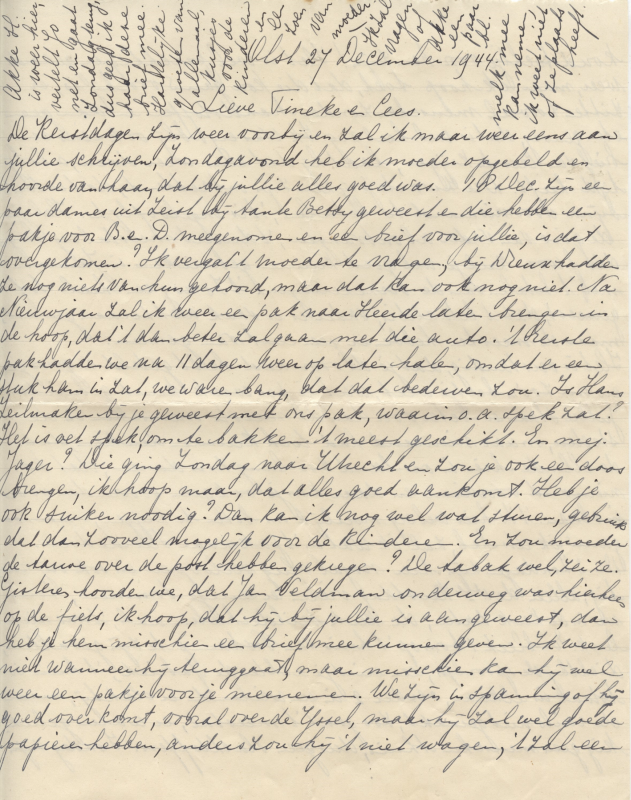 Olst 27 December 1944
Lieve Tineke en Cees.
De Kerstdagen zijn weer voorbij en zal ik maar weer eens aan
jullie schrijven, Zondagavond heb ik moeder opgebeld en
hoorde van haar, dat bij jullie alles goed was. 18 Dec. zijn een
paar dames uit Zeist bij tante Betsy geweest en die hebben een
pakje voor B. e. D. meegenomen en een brief voor jullie, is dat
overgekomen? Ik vergat 't moeder te vragen, bij Dieux hadden
ze nog niets van hun gehoord, maar dat kan ook nog niet. Na
Nieuwjaar zal ik weer een pak naar Heerde laten brengen in
de hoop, dat 't dan beter zal gaan met die auto. 't Eerste
pak hadden we na 11 dagen weer op laten halen, omdat er een
stuk ham in zat, we waren bang, dat dat bederven zou. Is Hans
Zeilmaker bij je geweest met ons pak, waarin o.a. spek zat?
Het is vet spek, om te bakken 't meest geschikt. En mej.
Jager? Die ging Zondag naar Utrecht en zou je ook een doos
brengen, ik hoop maar, dat alles goed aankomt. Heb je
ook suiker noodig? Dan kan ik nog wel wat sturen, gebruik
dat dan zooveel mogelijk voor de kinderen. En zou moeder
de tarwe over de post hebben gekregen? De tabak wel, zei ze.
Gisteren hoorden we, dat Jan Veldman onderweg was hierheen
op de fiets, ik hoop, dat hij bij jullie is aangeweest, dan
heb je hem misschien een brief mee kunnen geven. Ik weet
niet wanneer hij teruggaat, maar misschien kan hij wel
weer een pakje voor je meenemen. We zijn in spanning of hij
goed over komt, vooral over de IJssel, maar hij zal wel goede
papieren hebben, anders zou hij 't niet wagen, 't zal een
Akke H.
is weer hier,
vertelt zo
net en gaat
Zondag
dus geef ik
haar deze
brief mee.
Hartelijke
groeten van
allemaal,
kusjes
voor de
kinderen
en
een
zoen
van
moeder
Ik zal
vragen
of
Akke
een
paar
bl.
melk mee
kan nemen,
ik weet niet
of ze plaats
heeft.